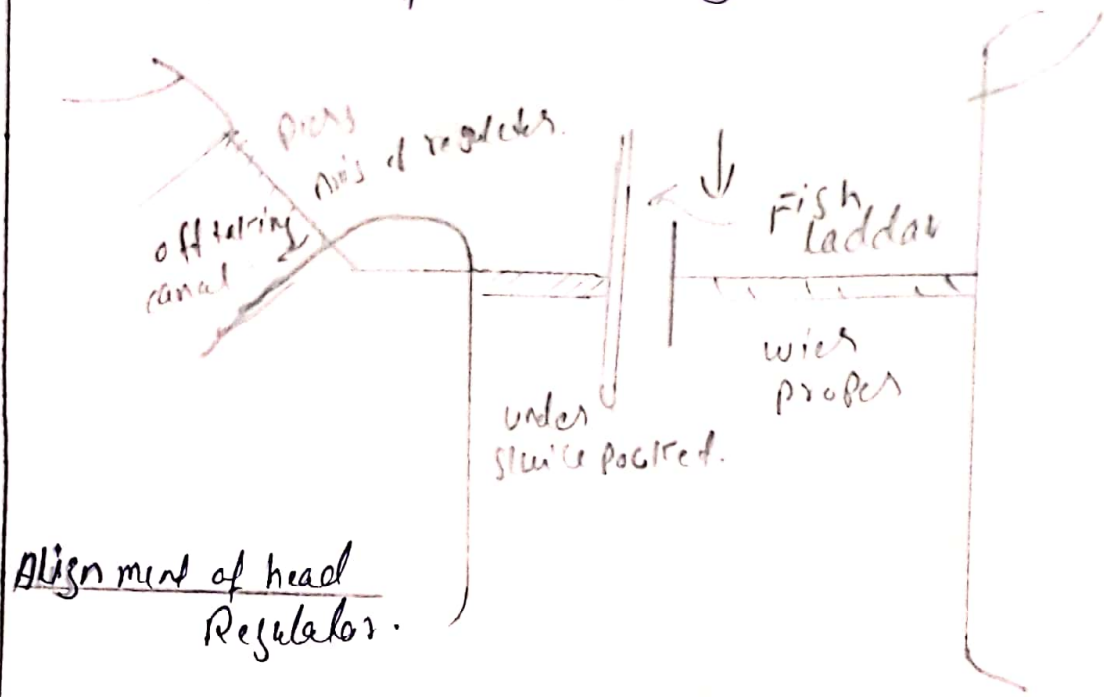 Piers
Axis of regulator.
off taking
canal
Fish
laddar
wier
proper
under
sluice pocket.
Alignment of head
Regulator.